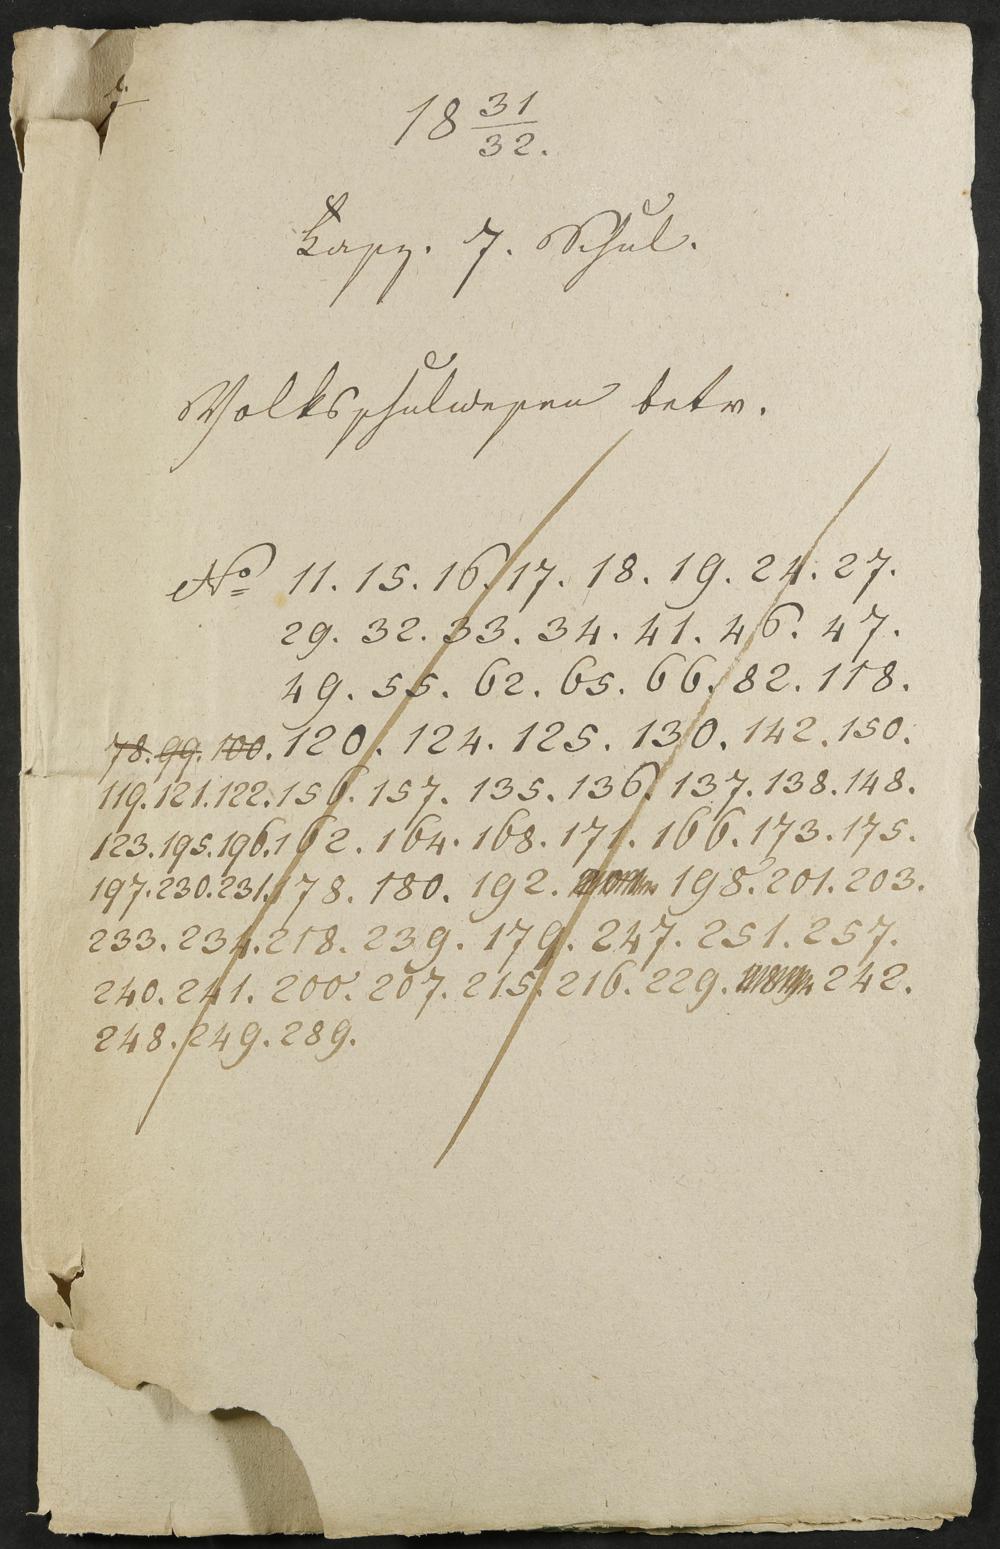 18 31/32.
Lapp. 7. Schul.
Volksschulwesen betr.
No 11. 15. 16. 17. 18. 19. 24. 27.
29. 32. 33. 34. 41. 46. 47.
49. 55. 62. 65. 66. 82. 118.
78. 99. 100. 120. 124. 125. 130. 142. 150.
119. 121. 122. 156. 157. 135. 136. 137. 138. 148.
123. 195. 196. 162. 164. 168. 171. 166. 173. 175.
197. 230. 231. 178. 180. 192. 198. 201. 203.
233. 234. 218. 239. 179. 247. 251. 257.
240. 241. 200. 207. 215. 216. 229. 242.
248. 249. 289.